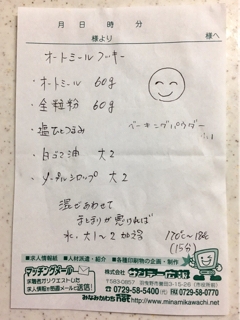 月 日 時 分
様より 様へ
オートミールクッキー
・オートミール 60g
・全粒粉 60g
・塩ひとつまみ
ベーキングパウダー
・白ごま油 大2
・メープルシロップ 大2
混ぜあわせて
まとまりが悪ければ
水、大1〜2加える
170℃〜180℃
(15分)
■求人情報紙 ■人材派遣・紹介 ■各種印刷物の企画・制作
マッチングメーカー
求職者がリクエストした
求人情報が携帯メールに送信!
株式会社 サンデー広報
〒583-0857 羽曳野市誉田3-15-28
☎0729-58-5400(代) FAX0729-58-0770
みなみかわちnet http://www.minamikawachi.net